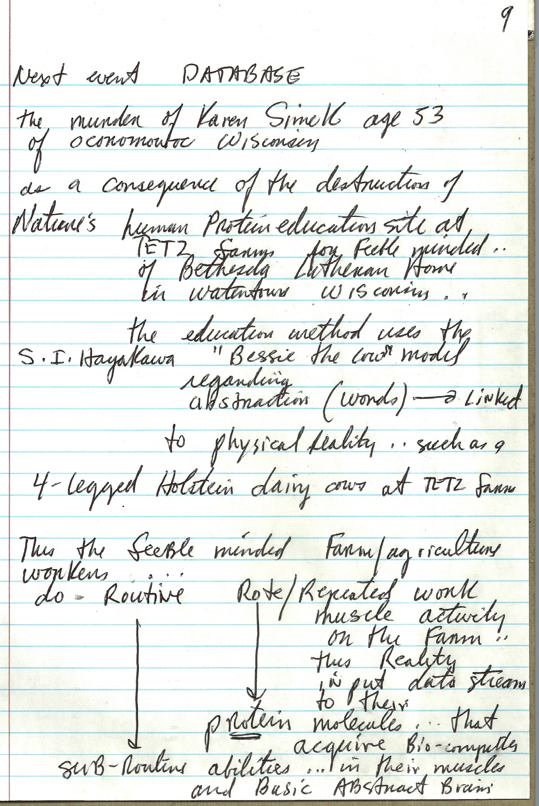 9
Next event DATABASE
the munden of Karen Simek age 53
of oconomowoc Wisconsin
as a consequence of the destruction of
Nature's human Protein education site at
TETZ Farms for Feeble minded..
of Bethesda Lutheran Home
in watertown Wisconsin..
the education method uses the
S. I. Hayakawa "Bessie the cow" model
regarding
abstraction (words) → Linked
to physical Reality .. such as a
4-legged Holstein dairy cows at TETZ farm
Thus the feeble minded Farm/agriculture
workers ....
do - Routine Rote/Repeated work
muscle activity
on the Farm ..
this Reality
input data stream
to their
protein molecules ... that
acquire Bio-computer
sub-Routine abilities ... in their muscles
and Basic Abstract Brain